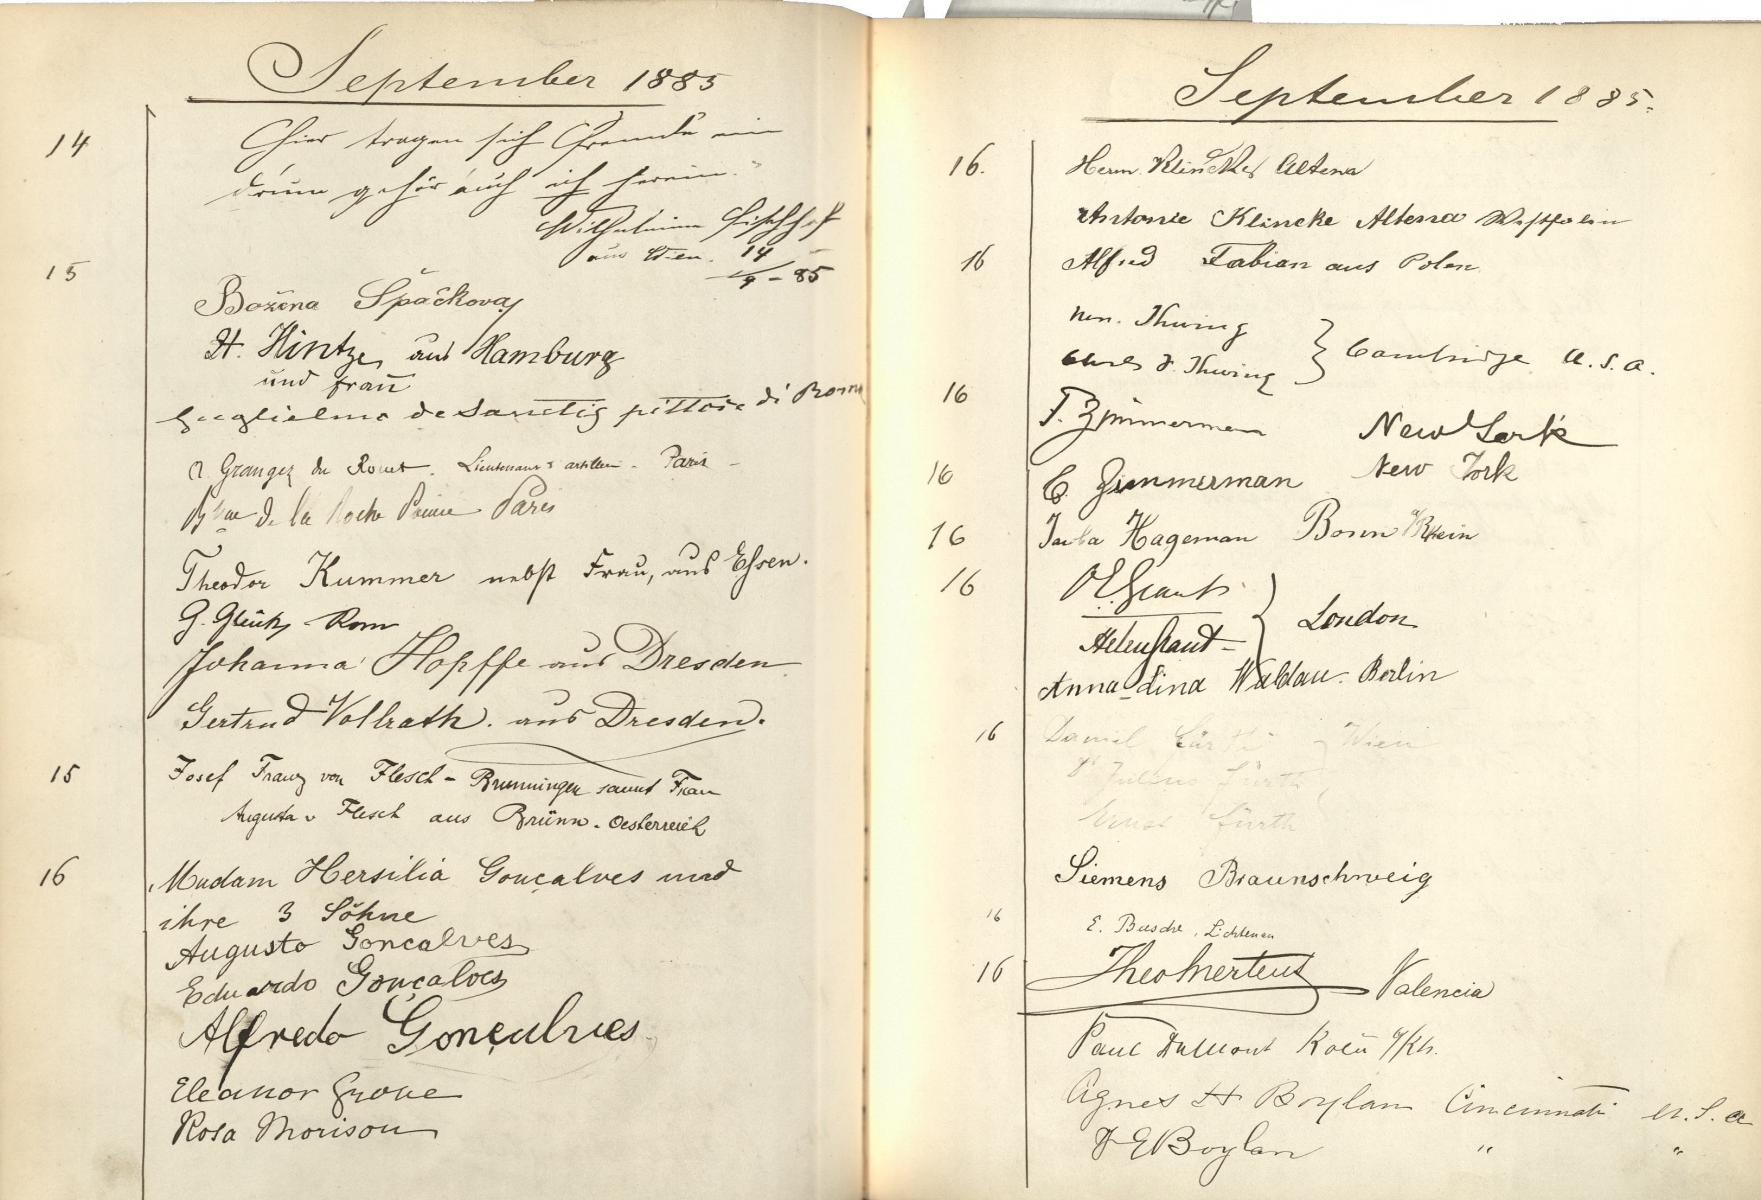 September 1885
14
Hier tragen sich Fremde ein
drum gehör' auch ich herein."
Wilhelmine Fischhof
aus Wien. 14/9 - 85
15
Božena Špačkova
H. Hintze, aus Hamburg
und Frau
Guglielmo de Sanctis pittore di Roma
Granger du Rouet. Lieutenant artillerie - Paris -
de la Roche Paris
Theodor Kummer nebst Frau, aus Essen.
G. Glück, Rom
Johanna Hopffe aus Dresden
Gertrud Vollrath. aus Dresden.
15
Josef Franz von Flesch - Brunningen sammt Frau
Augusta v Flesch aus Brünn - Oesterreich
16
Madam Hersilia Gonçalves und
ihre 3 Söhne
Augusto Goncalves
Eduardo Gonçalves
Alfredo Gonçalves
Eleanor Grove
Rosa Morison
September 1885.
16.
Herm. Klincke Altena
Antonie Klincke Altena Westfalen
16
Alfred Fabian aus Polen
Thwing
F. Thwing } Cambridge U.S.A.
16
F. Zimmermann New York
16
C. Zimmerman New York
16
Hageman Bonn a/Rhein
16
Grant
Helen Grant } London
Anna Lina Waldau - Berlin
16
Daniel Fürth - Wien
Dr Julius Fürth
Ernst Fürth
Siemens Braunschweig
16
E. Busche, Lichtenau
16
Theo Mertens Valencia
Paul DuMont Köln a/Rh.
Agnes H Boylan Cincinnati U.S.A
E Boylan " "